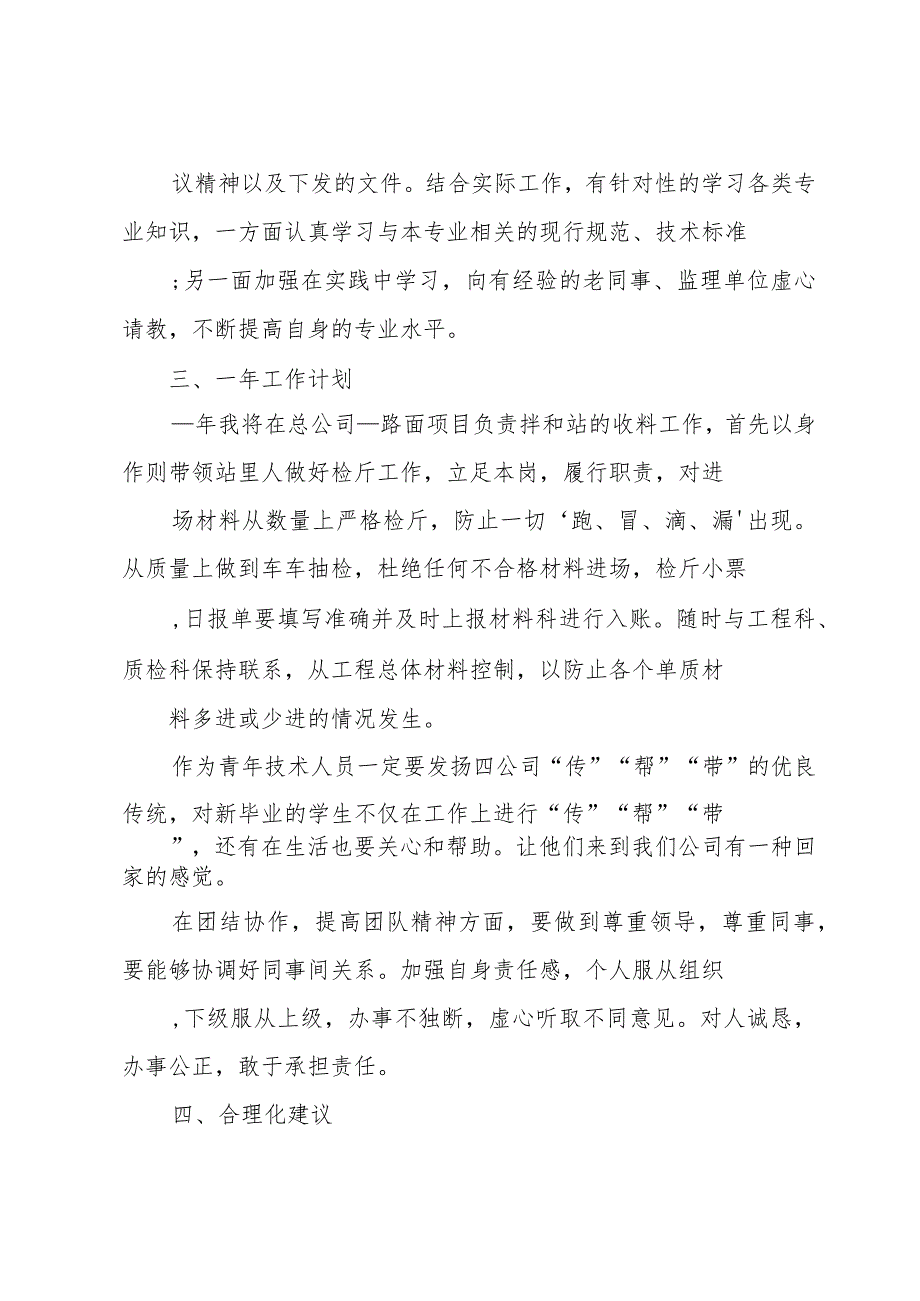 议精神以及下发的文件。结合实际工作，有针对性的学习各类专
业知识，一方面认真学习与本专业相关的现行规范、技术标准
;另一面加强在实践中学习，向有经验的老同事、监理单位虚心
请教，不断提高自身的专业水平。
三、一年工作计划
—年我将在总公司—路面项目负责拌和站的收料工作，首先以身
作则带领站里人做好检斤工作，立足本岗，履行职责，对进
场材料从数量上严格检斤，防止一切‘跑、冒、滴、漏'出现。
从质量上做到车车抽检，杜绝任何不合格材料进场，检斤小票
,日报单要填写准确并及时上报材料科进行入账。随时与工程科、
质检科保持联系，从工程总体材料控制，以防止各个单质材
料多进或少进的情况发生。
作为青年技术人员一定要发扬四公司“传”“帮”“带”的优良
传统，对新毕业的学生不仅在工作上进行“传”“帮”“带
”，还有在生活也要关心和帮助。让他们来到我们公司有一种回
家的感觉。
在团结协作，提高团队精神方面，要做到尊重领导，尊重同事，
要能够协调好同事间关系。加强自身责任感，个人服从组织
,下级服从上级，办事不独断，虚心听取不同意见。对人诚恳，
办事公正，敢于承担责任。
四、合理化建议